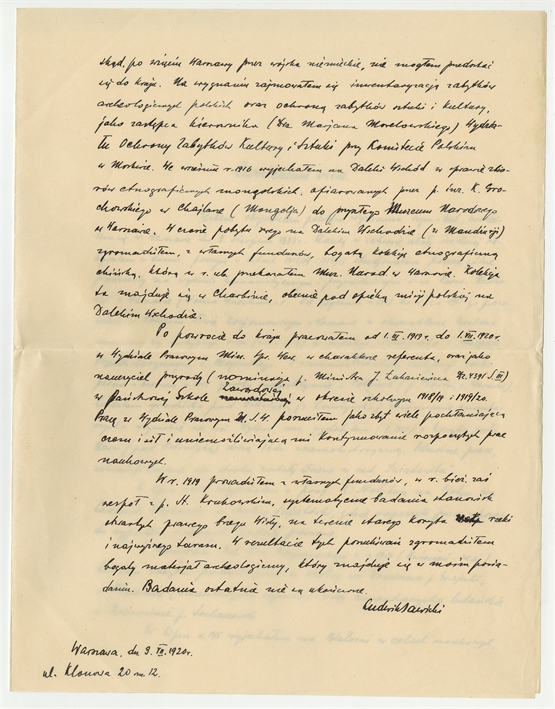 skąd, po wzięciu Warszawy przez wojska niemieckie, nie mogłem przedostać
się do kraju. Na wygnaniu zajmowałem się inwentaryzacją zabytków
archeologicznych polskich oraz ochroną zabytków sztuki i kultury,
jako zastępca kierownika (Dra Marjana Morelowskiego) Wydzia-
łu Ochrony Zabytków Kultury i Sztuki przy Komitecie Polskim
w Moskwie. We wrześniu r. 1916 wyjechałem na Daleki Wschód w sprawie zbio-
rów etnograficznych mongolskich, ofiarowanych przez p. inż. K. Gro-
chowskiego w Chajłarze (Mongolja) do przyszłego Muzeum Narodowego
w Warszawie. W czasie pobytu mego na Dalekim Wschodzie (w Mandżurji)
zgromadziłem, z własnych funduszów, bogatą kolekcję etnograficzną
chińską, którą w r. ub. przekazałem Muz. Narod. w Warszawie. Kolekcja
ta znajduje się w Charbinie, obecnie pod opieką misji polskiej na
Dalekim Wschodzie.
Po powrocie do kraju pracowałem od 1. III. 1919 r. do 1. VII. 1920 r.
w Wydziale Prasowym Min. Spr. Wew. w charakterze referenta, oraz jako
nauczyciel przyrody (nominacja p. Ministra J. Łukasiewicza Nr. 4391 III)
w Państwowej Szkole Zawodowej w okresie szkolnym 1918/19 i 1919/20.
Pracę w Wydziale Prasowym M.S.W. porzuciłem jako zbyt wiele pochłaniającą
czasu i sił i uniemożliwiającą mi kontynuowanie rozpoczętych prac
naukowych.
W r. 1919 prowadziłem z własnych funduszów, w r. bież. zaś
zespół z p. St. Krukowskim, systematyczne badania stanowisk
otwartych prawego brzegu Wisły, na terenie starego koryta rzeki
i najwyższego tarasu. W rezultacie tych poszukiwań zgromadziłem
bogaty materjał archeologiczny, który znajduje się w moim posia-
daniu. Badania ostatnie nie są ukończone.
Ludwik Sawicki
Warszawa, dn. 9. 1920 r.
ul. Klonowa 20 m. 12.